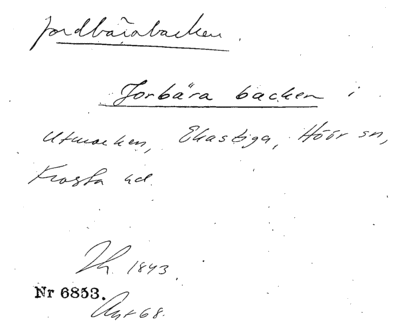 Jordbärabacken.
Jorbära backen i
Utmarken, Ekastiga, Höör sn,
Frosta hd.
1843.
Nr 6853.